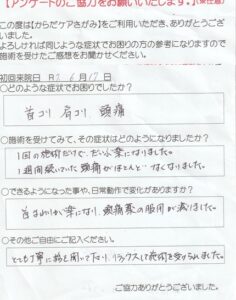 【アンケートのご協力をお願いいたします。】（来任意）
この度は【からだケアさがみ】をご利用いただき、ありがとうござ
いました。
よろしければ同じような症状でお困りの方の参考になりますので
施術を受けたご感想をお聞かせください。
初回来院日 R2年6月17日
○どのような症状でお困りでしたか？
首コリ 肩コリ 頭痛
○施術を受けてみて、その症状はどのようになりましたか？
1回の施術だけで、だいぶ楽になりました。
1週間続いていた頭痛がほとんどなくなりました。
○できるようになった事や、日常動作で変化がありますか？
首まわりが楽になり、頭痛薬の服用が減りました。
○その他ご自由にご記入ください。
とても丁寧に話を聞いて下さり、リラックスして施術を受けられました。
ご協力ありがとうございました。